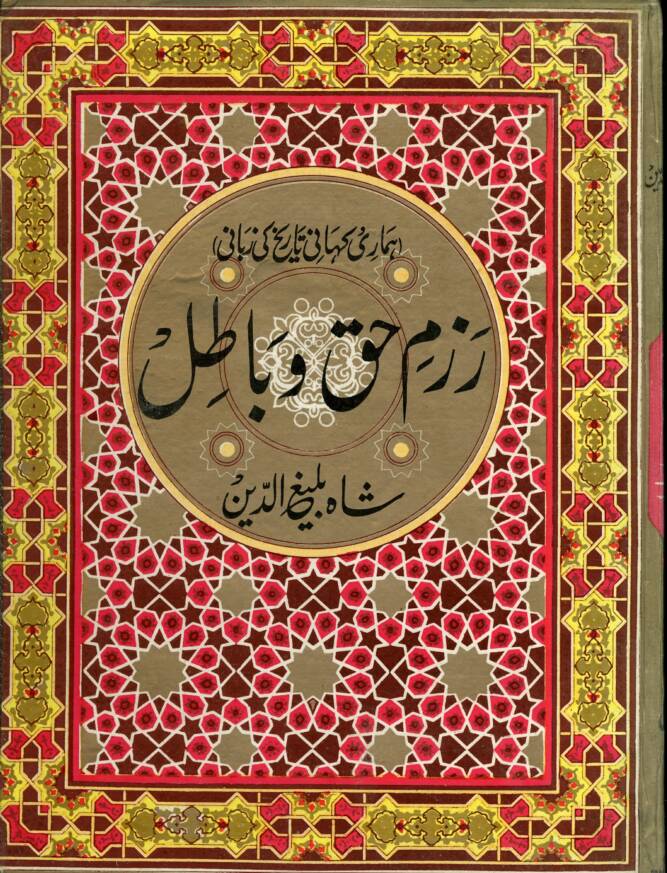 (ہماری کہانی تاریخ کی زبانی)
رَزمِ حق و بَاطِل
شاہ بلیغ الدّین